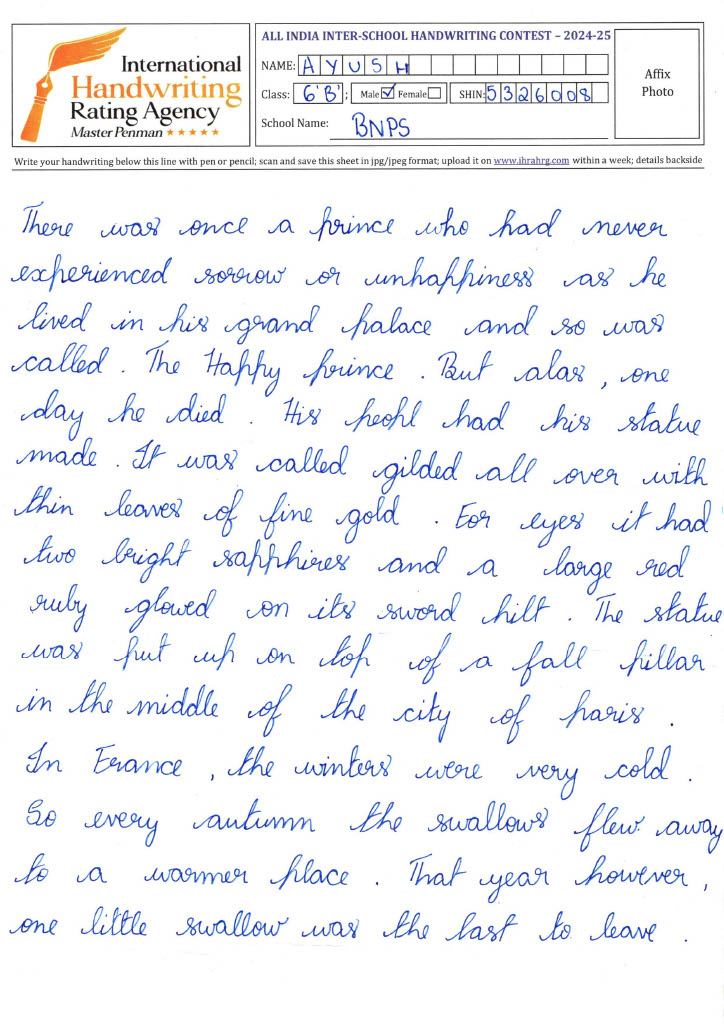 International
Handwriting
Rating Agency
Master Penman ★★★★★
ALL INDIA INTER-SCHOOL HANDWRITING CONTEST – 2024-25
NAME: AYUSH
Class: 6'B'; Male ☑ Female ☐ SHIN: 5326008
School Name: BNPS
Affix
Photo
Write your handwriting below this line with pen or pencil; scan and save this sheet in jpg/jpeg format; upload it on www.ihrahrg.com within a week; details backside
There was once a prince who had never
experienced sorrow or unhappiness as he
lived in his grand palace and so was
called . The Happy prince . But alas , one
day he died . His peopl had his statue
made . It was called gilded all over with
thin leaves of fine gold . For eyes it had
two bright sapphires and a large red
ruby glowed on its sword hilt . The statue
was put up on top of a fall pillar
in the middle of the city of paris .
In France , the winters were very cold .
So every autumn the swallows flew away
to a warmer place . That year however ,
one little swallow was the last to leave .